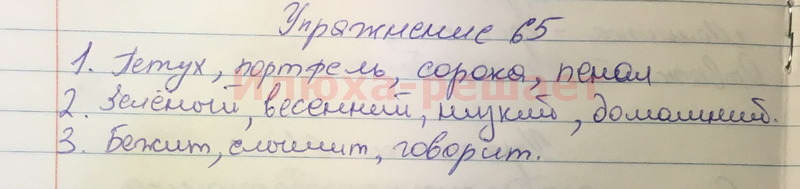 Упражнение 65
1. Петух, портфель, сорока, пенал
2. Зелёный, весенний, низкий, домашний.
3. Бежит, слышит, говорит.
Илюха-решает